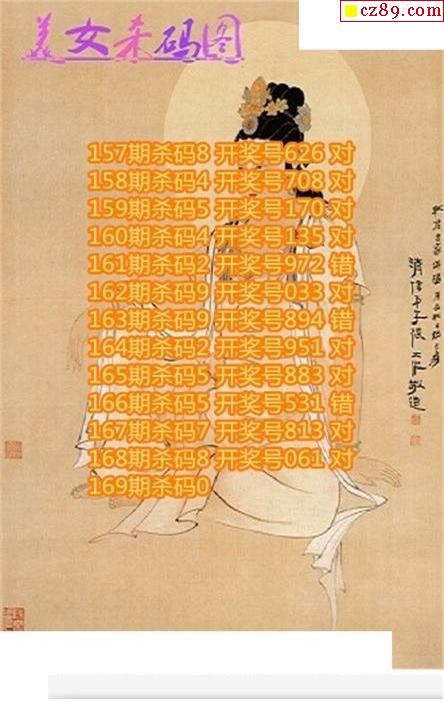 cz89.com
美女杀码图
157期杀码8 开奖号626 对
158期杀码4 开奖号708 对
159期杀码5 开奖号170 对
160期杀码4 开奖号135 对
161期杀码2 开奖号972 错
162期杀码9 开奖号033 对
163期杀码9 开奖号894 错
164期杀码2 开奖号951 对
165期杀码5 开奖号883 对
166期杀码5 开奖号531 错
167期杀码7 开奖号813 对
168期杀码8 开奖号061 对
169期杀码0